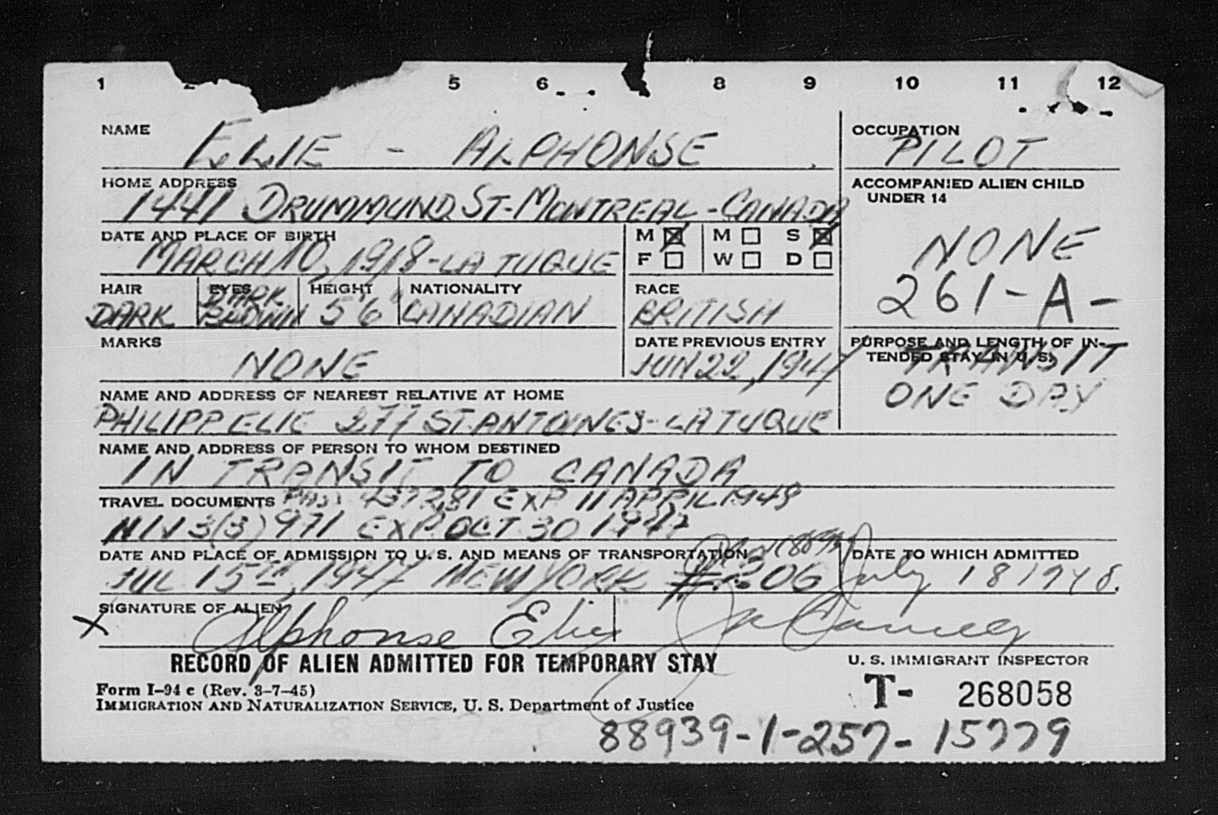 1 5 6 8 9 10 11 12
NAME ELIE - ALPHONSE
OCCUPATION PILOT
HOME ADDRESS 1441 DRUMMUND ST-MONTREAL-CANADA
ACCOMPANIED ALIEN CHILD
UNDER 14
NONE
261-A-
DATE AND PLACE OF BIRTH
MARCH 10, 1918-LA TUQUE
M ☒ M ☐ S ☒
F ☐ W ☐ D ☐
HAIR EYES HEIGHT NATIONALITY RACE
DARK DARK BROWN 5'6" CANADIAN BRITISH
MARKS NONE
DATE PREVIOUS ENTRY
JUN 22, 1947
PURPOSE AND LENGTH OF IN-
TENDED STAY IN U. S.
TRANSIT
ONE DAY
NAME AND ADDRESS OF NEAREST RELATIVE AT HOME
PHILIPP ELIE 277 ST. ANTOINES-LATUQUE
NAME AND ADDRESS OF PERSON TO WHOM DESTINED
IN TRANSIT TO CANADA
TRAVEL DOCUMENTS EXP 11 APRIL 1948
3(3) 971 EXP. OCT 30 1947
DATE AND PLACE OF ADMISSION TO U. S. AND MEANS OF TRANSPORTATION
JUL 15TH, 1947 NEW YORK
DATE TO WHICH ADMITTED
July 18 1948.
SIGNATURE OF ALIEN
X Alphonse Elie
RECORD OF ALIEN ADMITTED FOR TEMPORARY STAY
U. S. IMMIGRANT INSPECTOR
Form I-94 c (Rev. 3-7-45)
IMMIGRATION AND NATURALIZATION SERVICE, U. S. Department of Justice
T- 268058
88939-1-257-15779